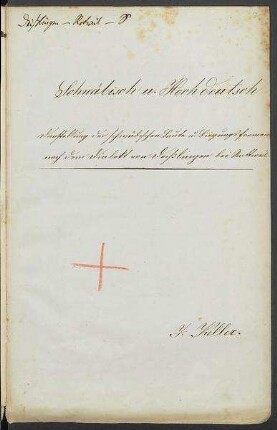 Deißlingen – Rottweil – S
Schwäbisch u. Hochdeutsch
Darstellung der schwäbischen Laute u. Biegungsformen
nach dem Dialekt von Deißlingen bei Rottweil
J. Keller.